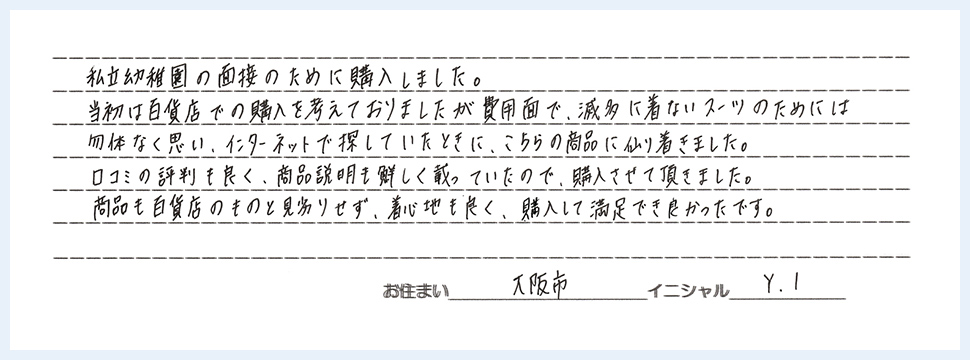 私立幼稚園の面接のために購入しました。
当初は百貨店での購入を考えておりましたが費用面で、滅多に着ないスーツのためには
勿体なく思い、インターネットで探していたときに、こちらの商品に辿り着きました。
口コミの評判も良く、商品説明も詳しく載っていたので、購入させて頂きました。
商品も百貨店のものと見劣りせず、着心地も良く、購入して満足でき良かったです。
お住まい 大阪市 イニシャル Y.I